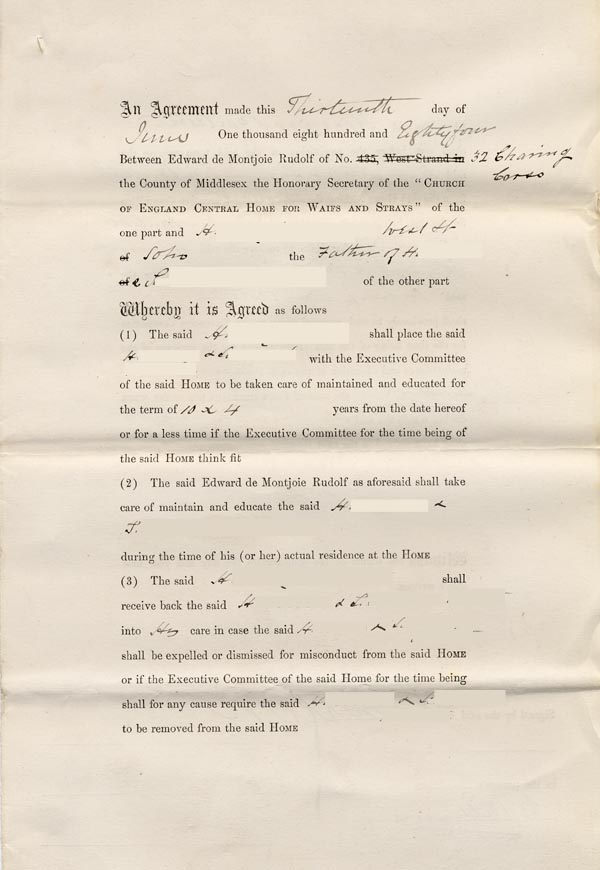 An Agreement made this Thirteenth day of
June One thousand eight hundred and Eightyfour
Between Edward de Montjoie Rudolf of No. 435, West Strand in 32 Charing
Corso
the County of Middlesex the Honorary Secretary of the "CHURCH
OF ENGLAND CENTRAL HOME FOR WAIFS AND STRAYS" of the
one part and H. West St
of Soho the Father of H.
of & of the other part
Whereby it is Agreed as follows
(1) The said H. shall place the said
H & S. with the Executive Committee
of the said HOME to be taken care of maintained and educated for
the term of 10 & 4 years from the date hereof
or for a less time if the Executive Committee for the time being of
the said HOME think fit
(2) The said Edward de Montjoie Rudolf as aforesaid shall take
care of maintain and educate the said H. &
during the time of his (or her) actual residence at the HOME
(3) The said H shall
receive back the said H & S.
into His care in case the said H & S.
shall be expelled or dismissed for misconduct from the said HOME
or if the Executive Committee of the said Home for the time being
shall for any cause require the said H. & S.
to be removed from the said HOME